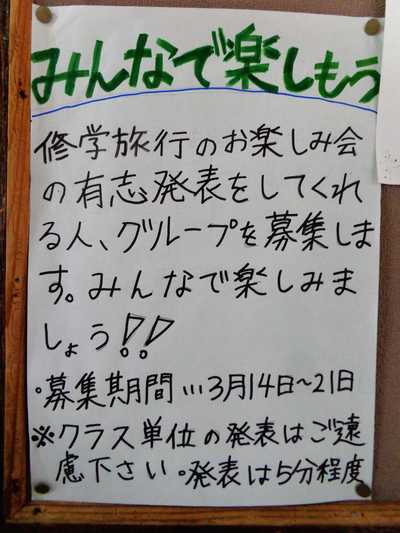 みんなで楽しもう
修学旅行のお楽しみ会
の有志発表をしてくれ
る人、グループを募集しま
す。みんなで楽しみま
しょう!!
・募集期間…3月14日～21日
※クラス単位の発表はご遠
慮下さい。発表は5分程度